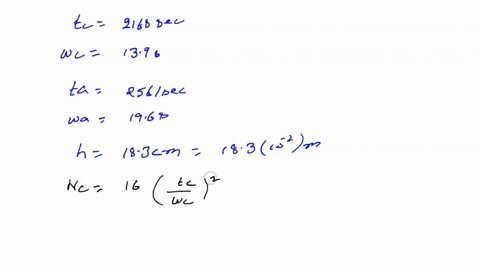 tc = 2168 sec
wc = 13.96
ta = 2561 sec
wa = 19.68
h = 18.3 cm = 18.3 (10^-2) m
Nc = 16 (tc/wc)^2